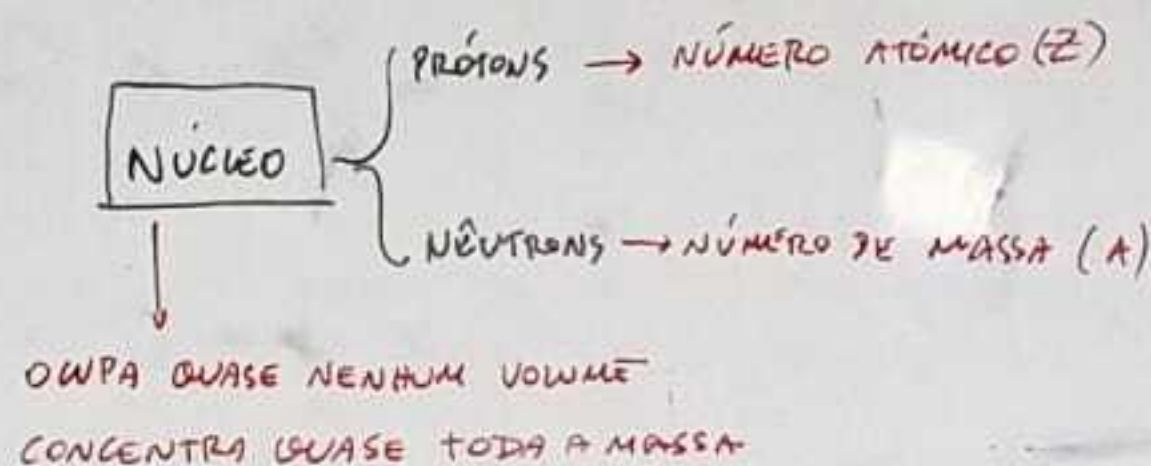 PRÓTONS → NÚMERO ATÔMICO (Z)
NÚCLEO
NÊUTRONS → NÚMERO DE MASSA (A)
OCUPA QUASE NENHUM VOLUME
CONCENTRA QUASE TODA A MASSA